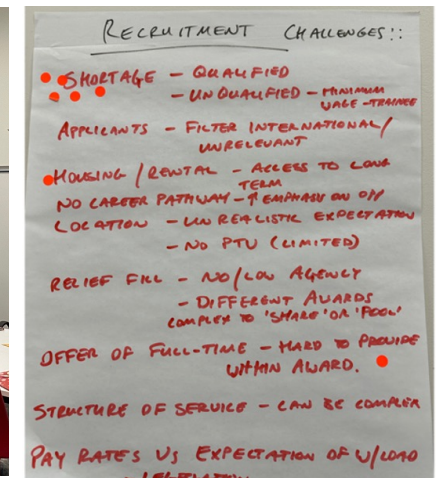 RECRUITMENT CHALLENGES!:
SHORTAGE - QUALIFIED
- UNQUALIFIED - MINIMUM
WAGE - TRAINEE
APPLICANTS - FILTER INTERNATIONAL/
UNRELEVANT
HOUSING/RENTAL - ACCESS TO LONG
TERM
NO CAREER PATHWAY - ↑ EMPHASIS ON
LOCATION - UNREALISTIC EXPECTATION
- NO PTU (LIMITED)
RELIEF FILL - NO/LOW AGENCY
- DIFFERENT AWARDS
COMPLEX TO 'SHARE' OR 'POOL'
OFFER OF FULL-TIME - HARD TO PROVIDE
WITHIN AWARD.
STRUCTURE OF SERVICE - CAN BE COMPLEX
PAY RATES VS EXPECTATION OF W/LOAD